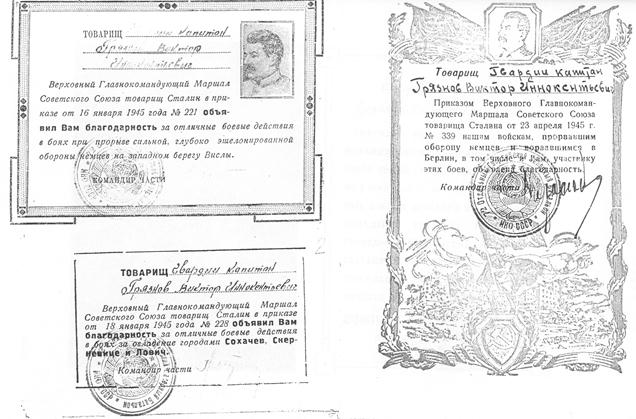 ТОВАРИЩ ии капитан
Грязнов Виктор
Иннокентьевич
Верховный Главнокомандующий Маршал
Советского Союза товарищ Сталин в при-
казе от 16 января 1945 года № 221 объя-
вил Вам благодарность за отличные боевые действия
в боях при прорыве сильной, глубоко эшелонированной
обороны немцев на западном берегу Вислы.
КОМАНДИР ЧАСТИ
ТОВАРИЩ Гвардии капитан
Грязнов Виктор Иннокентьевич
Верховный Главнокомандующий Маршал
Советского Союза товарищ Сталин в приказе
от 18 января 1945 года № 228 объявил Вам
благодарность за отличные боевые действия
в боях за овладение городами Сохачев, Скер-
невице и Лович.
Командир части
Товарищ Гвардии капитан
Грязнов Виктор Иннокентьевич
Приказом Верховного Главнокоман-
дующего Маршала Советского Союза
товарища Сталина от 23 апреля 1945 г.
№ 339 нашим войскам, прорвавшим
оборону немцев и ворвавшимся в
Берлин, в том числе и Вам, участнику
этих боев, объявлена благодарность.
Командир части
НКО-СССР